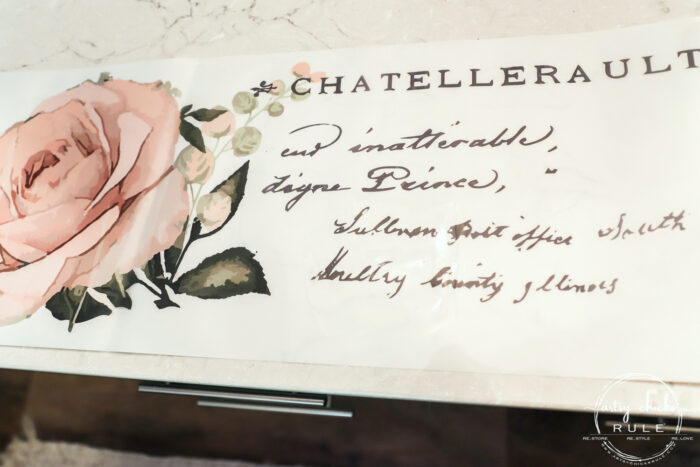 CHATELLERAULT
inattérable,
digne Prince, "
Sullivan Post office South
Moultry County Illinois
RULE
RE.STORE RE.STYLE RE.LOVE